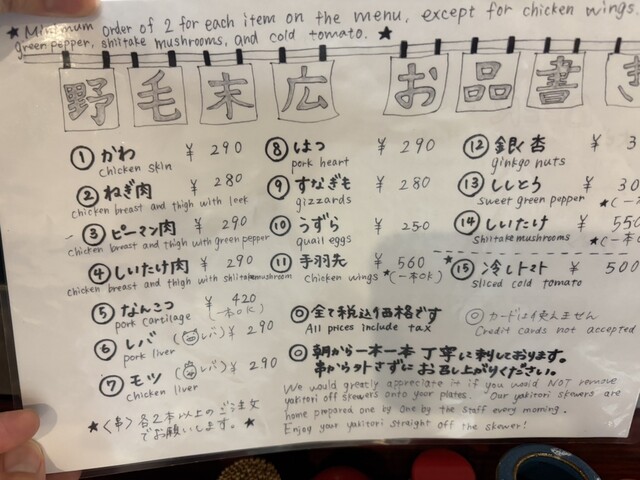 ★ Minimum order of 2 for each item on the menu, except for chicken wings,
green pepper, shiitake mushrooms, and cold tomato. ★
野毛末広 お品書き
① かわ ¥ 290
chicken skin
② ねぎ肉 ¥ 280
chicken breast and thigh with leek
③ ピーマン肉 ¥ 290
chicken breast and thigh with green pepper
④ しいたけ肉 ¥ 290
chicken breast and thigh with shiitakemushroom
⑤ なんこつ ¥ 420
pork cartilage (一本OK)
⑥ レバ (レバ) ¥ 290
pork liver
⑦ モツ (レバ) ¥ 290
chicken liver
★〈串〉各2本以上のご注文
でお願いします。★
⑧ はつ ¥ 290
pork heart
⑨ すなぎも ¥ 280
gizzards
⑩ うずら ¥ 250
quail eggs
⑪ 手羽先 ¥ 560
chicken wings ★(一本OK)
⑫ 銀杏 ¥ 3
ginkgo nuts
⑬ ししとう ¥ 30
sweet green pepper ★(一
⑭ しいたけ ¥ 550
Shiitake mushrooms ★(一本
★⑮ 冷しトマト ¥ 500
sliced cold tomato
◎ 全て税込価格です
All prices include tax
◎ カードは使えません
Credit cards not accepted
◎ 朝から一本一本丁寧に刺しております。
串から外さずにお召し上がりください。
We would greatly appreciate it if you would NOT remove
yakitori off skewers onto your plates. Our yakitori skewers are
home prepared one by one by the staff every morning.
Enjoy your yakitori straight off the skewer!